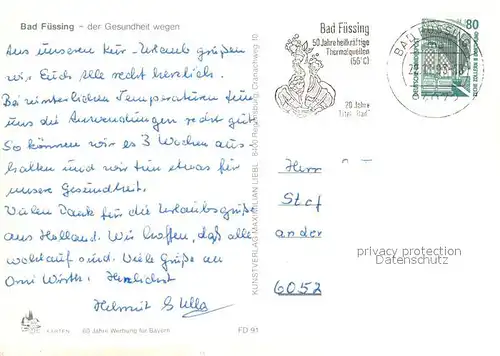 Bad Füssing - der Gesundheit wegen
Aus unserem Kur-Urlaub grüßen
wir Euch Alle recht herzlich.
Bei winterlichen Temperaturen tun
uns die Anwendungen recht gut.
So können wir es 3 Wochen aus-
halten und wir tun etwas für
unsere Gesundheit.
Vielen Dank für die Urlaubsgrüße
aus Holland. Wir hoffen, daß alle
wohlauf sind. Viele Grüße an
Omi Wirth. Herzlichst
Helmut & Ulla
KARTEN 60 Jahre Werbung für Bayern FD 91
KUNSTVERLAG MAXIMILIAN LIEBL 8400 Regensburg
Bad Füssing
50 Jahre heilkräftige
Thermalquellen
(56°C)
20 Jahre
Titel "Bad"
BAD FÜSSING
80
Herr
Stef
ander
6052
privacy protection
watermark